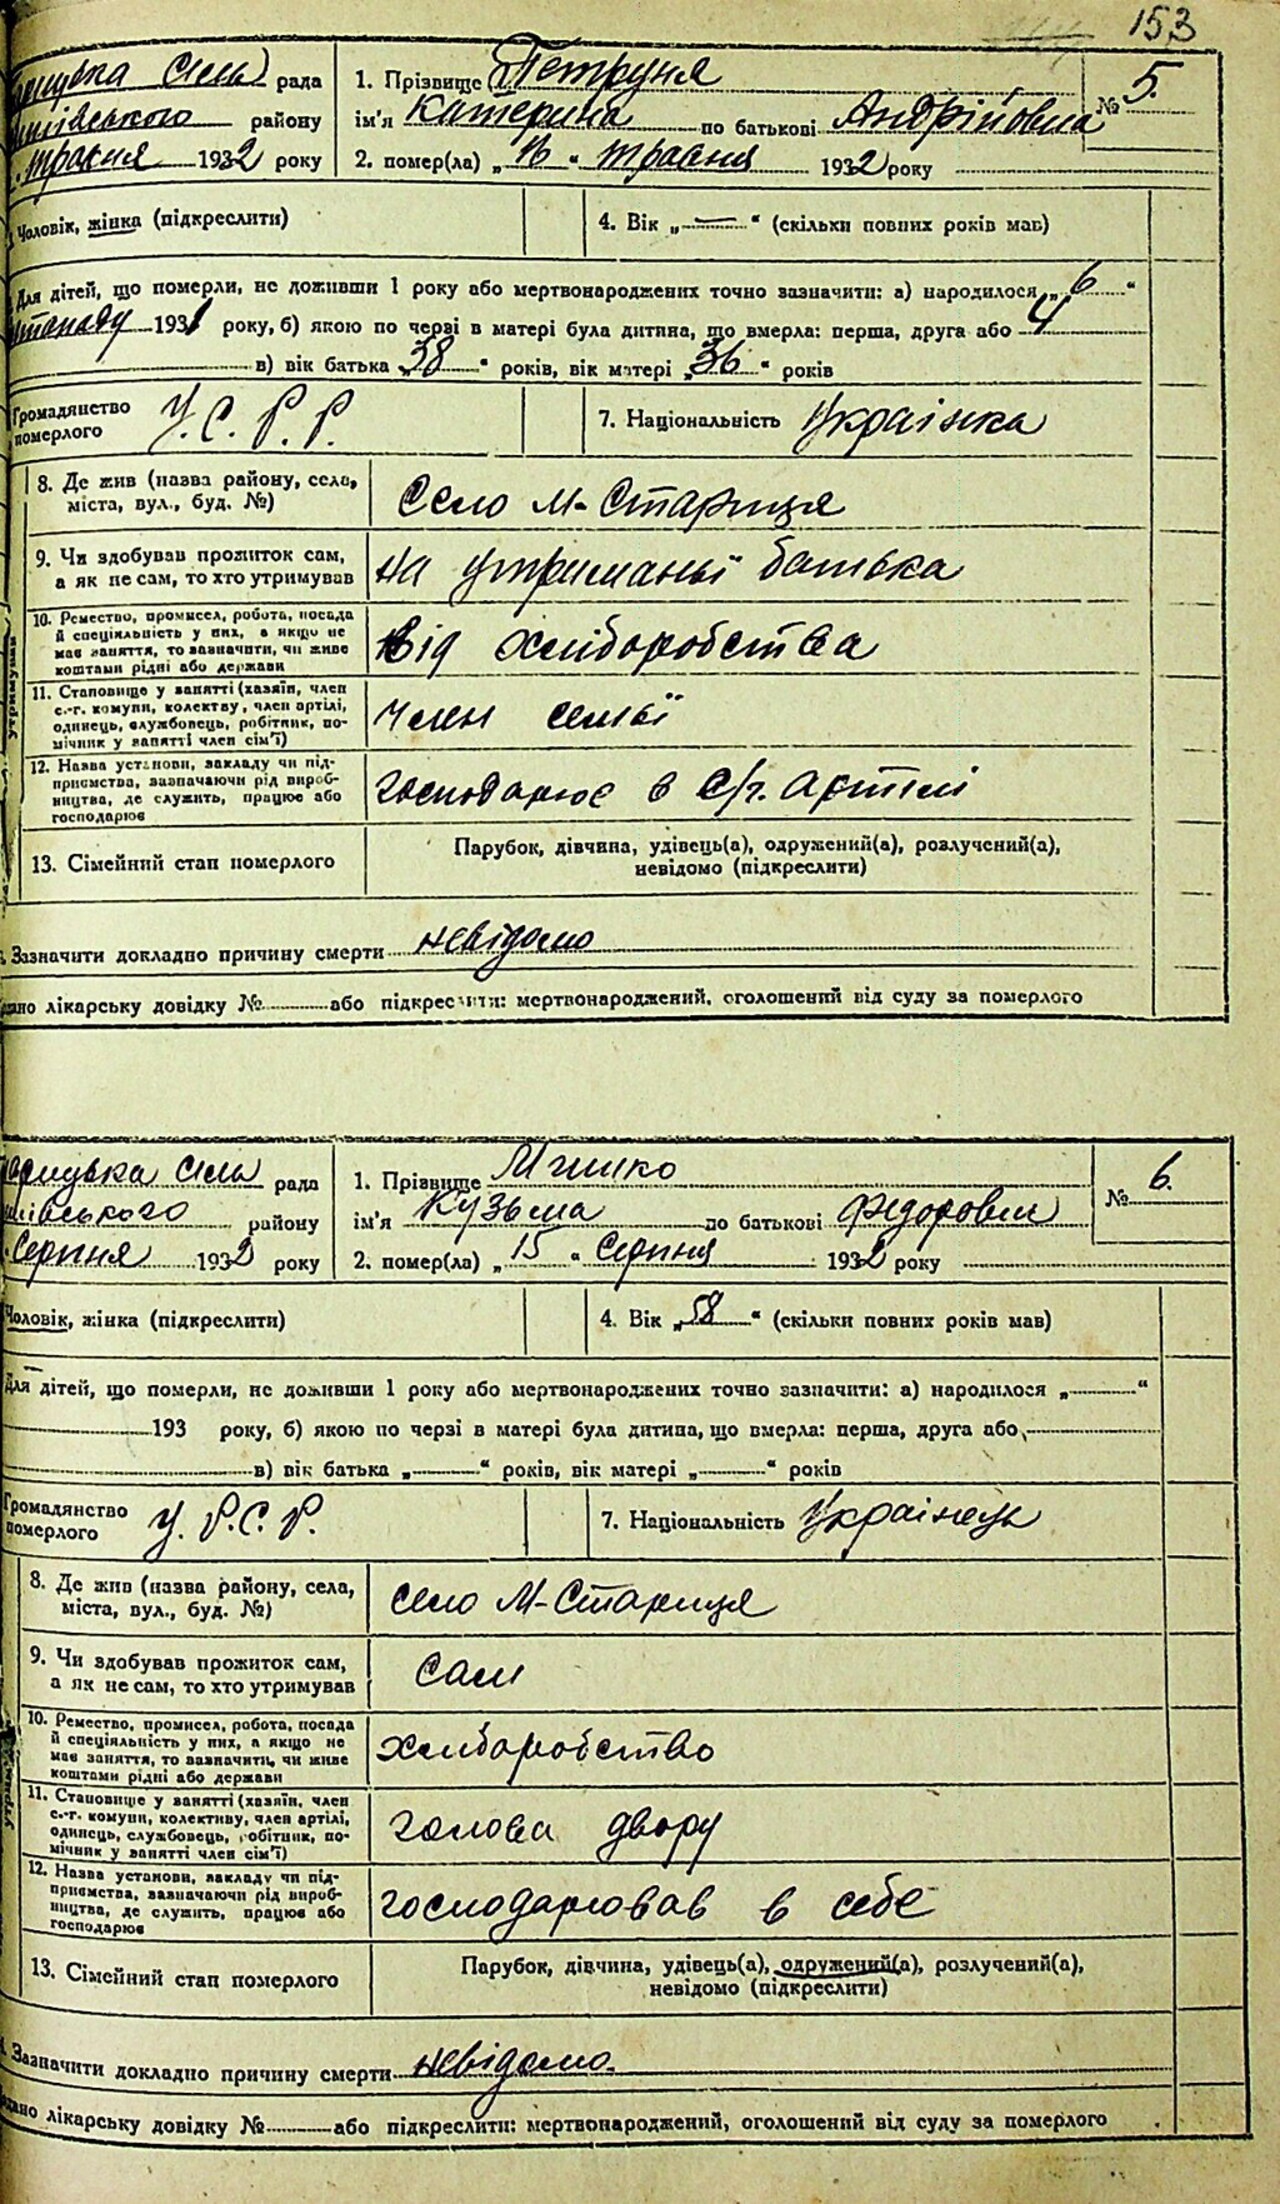 153
сіль рада
району
травня 1932 року
1. Прізвище Петруня
ім'я Катерина по батькові Андрійовна
2. помер(ла) „16“ травня 1932 року
№ 5.
Чоловік, жінка (підкреслити)
4. Вік „—“ (скільки повних років мав)
Для дітей, що померли, не доживши 1 року або мертвонароджених точно зазначити: а) народилося „6“
1931 року, б) якою по черзі в матері була дитина, що вмерла: перша, друга або 4
в) вік батька „38“ років, вік матері „36“ років
Громадянство померлого У.С.Р.Р.
7. Національність Українка
8. Де жив (назва району, села,
міста, вул., буд. №)
Село М-Стариця
9. Чи здобував прожиток сам,
а як не сам, то хто утримував
на утриманьї батька
10. Ремество, промисел, робота, посада
й спеціяльність у них, а якщо не
має заняття, то зазначити, чи живе
коштами рідні або держави
від хліборобства
11. Становище у занятті (хазяїн, член
с.-г. комуни, колективу, член артілі,
одинець, службовець, робітник, по-
мічник у занятті член сім'ї)
член семьї
12. Назва установи, закладу чи під-
приємства, зазначаючи рід вироб-
ництва, де служить, працює або
господарює
господарює в с/г. артілі
13. Сімейний стан померлого
Парубок, дівчина, удівець(а), одружений(а), розлучений(а),
невідомо (підкреслити)
Зазначити докладно причину смерти невідомо
лікарську довідку № або підкреслити: мертвонароджений, оголошений від суду за померлого
сіль рада
району
Серпня 1932 року
1. Прізвище
ім'я Кузьма по батькові Федорович
2. помер(ла) „15“ Серпня 1932 року
№ 6.
Чоловік, жінка (підкреслити)
4. Вік „58“ (скільки повних років мав)
Для дітей, що померли, не доживши 1 року або мертвонароджених точно зазначити: а) народилося „—“
193 року, б) якою по черзі в матері була дитина, що вмерла: перша, друга або
в) вік батька „—“ років, вік матері „—“ років
Громадянство померлого У.Р.С.Р.
7. Національність Українець
8. Де жив (назва району, села,
міста, вул., буд. №)
село М-Стариця
9. Чи здобував прожиток сам,
а як не сам, то хто утримував
сам
10. Ремество, промисел, робота, посада
й спеціяльність у них, а якщо не
має заняття, то зазначити, чи живе
коштами рідні або держави
хліборобство
11. Становище у занятті (хазяїн, член
с.-г. комуни, колективу, член артілі,
одинець, службовець, робітник, по-
мічник у занятті член сім'ї)
голова двору
12. Назва установи, закладу чи під-
приємства, зазначаючи рід вироб-
ництва, де служить, працює або
господарює
господарював в себе
13. Сімейний стан померлого
Парубок, дівчина, удівець(а), одружений(а), розлучений(а),
невідомо (підкреслити)
Зазначити докладно причину смерти невідомо.
лікарську довідку № або підкреслити: мертвонароджений, оголошений від суду за померлого